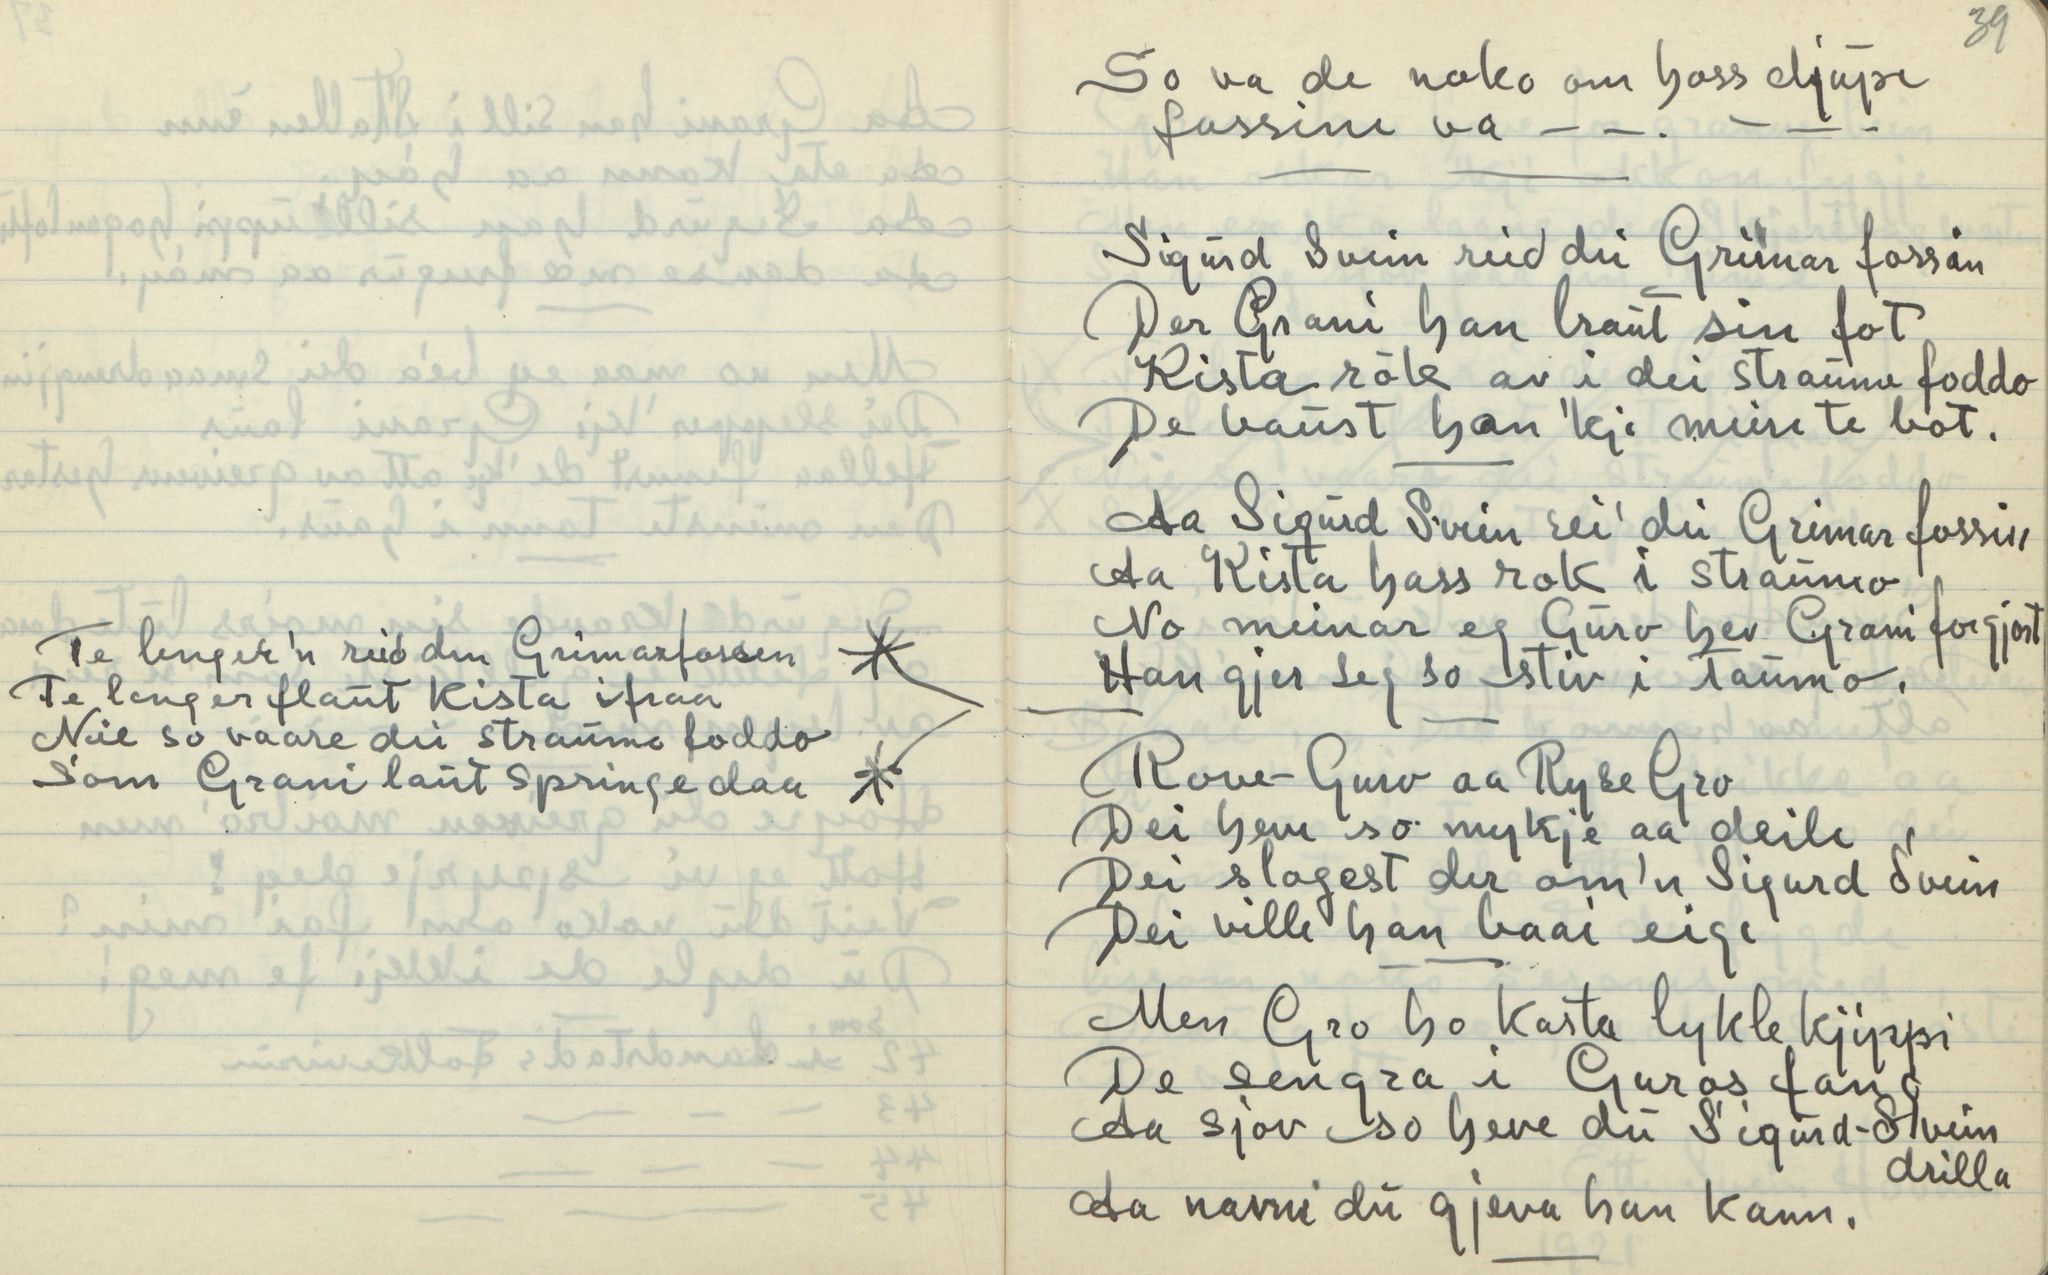 Te lenger'n reid den Grimarfossen
Te lenger flaut Kista ifraa
Naie so vaare dei straume foddo
Som Grani laut springe daa
39
So va de noko om hass djupe
fossine va — — . — — -
Sigurd Svein reid dei Grimar fossan
Der Grani han braut sin fot
Kista rok av i dei straume foddo
De baust han 'kji meir te bot.
Aa Sigurd Svein rei' dei Grimar fossin
Aa Kista hass rok i straumo
No meinar eg Guro hev Grani forgjort
Han gjer seg so stiv i taumo.
Rove-Guro aa Ryse Gro
Dei heve so mykje aa deile
Dei slogest der om'n Sigurd Svein
Dei ville han baai eige
Men Gro ho kasta lykle kjippi
De sengra i Guros fang
Aa sjov so heve du Sigurd-Svein
drilla
Aa navni du gjeva han kann.